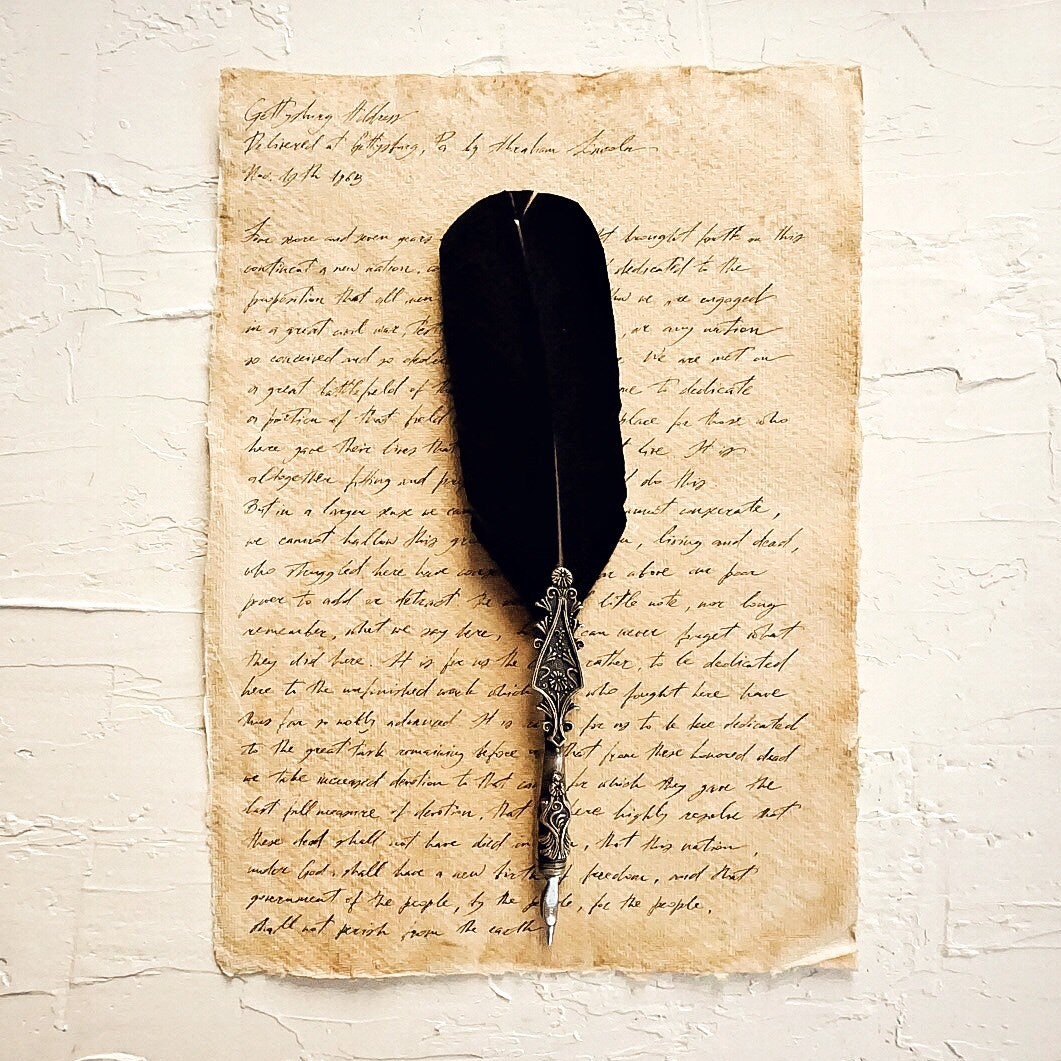 Gettysburg Address
Delivered at Gettysburg, Pa by Abraham Lincoln
Nov. 19th 1863
Four score and seven years brought forth on this
continent a new nation, dedicated to the
proposition that all men we are engaged
in a great civil war, or any nation
so conceived and so We are met on
a great battlefield of to dedicate
a portion of that field place for those who
here gave their lives that live. It is
altogether fitting and do this.
But in a larger sense we consecrate,
we cannot hallow this living and dead,
who struggled here have above our poor
power to add or detract the little note, nor long
remember, what we say here, can never forget what
they did here. It is for us the rather, to be dedicated
here to the unfinished work which who fought here have
thus far so nobly advanced It is for us to be here dedicated
to the great task remaining before that from these honored dead
we take increased devotion to that for which they gave the
last full measure of devotion, that here highly resolve that
these dead shall not have died in, that this nation,
under God, shall have a new birth of freedom, and that
government of the people, by the, for the people,
shall not perish from the earth